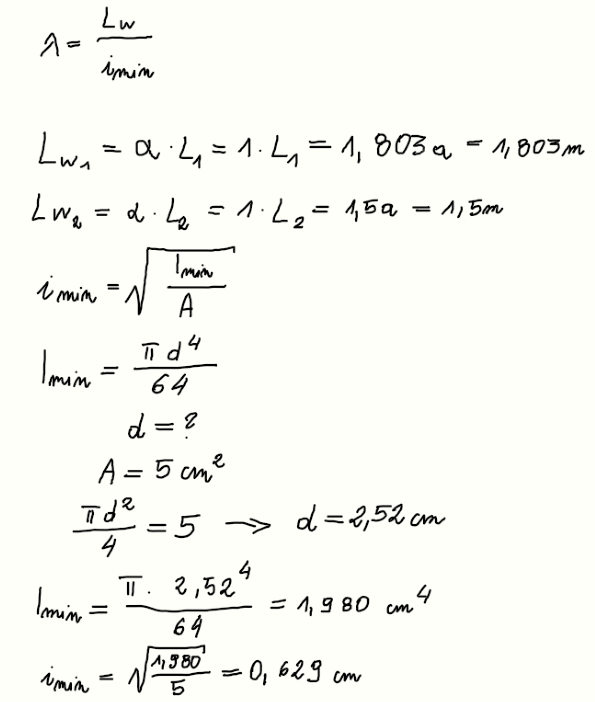 λ = Lw / imin
Lw₁ = α · L₁ = 1 · L₁ = 1,803a = 1,803m
Lw₂ = α · L₂ = 1 · L₂ = 1,5a = 1,5m
imin = √(Imin / A)
Imin = πd⁴ / 64
d = ?
A = 5 cm²
πd² / 4 = 5 → d = 2,52 cm
Imin = π · 2,52⁴ / 64 = 1,980 cm⁴
imin = √(1,980 / 5) = 0,629 cm